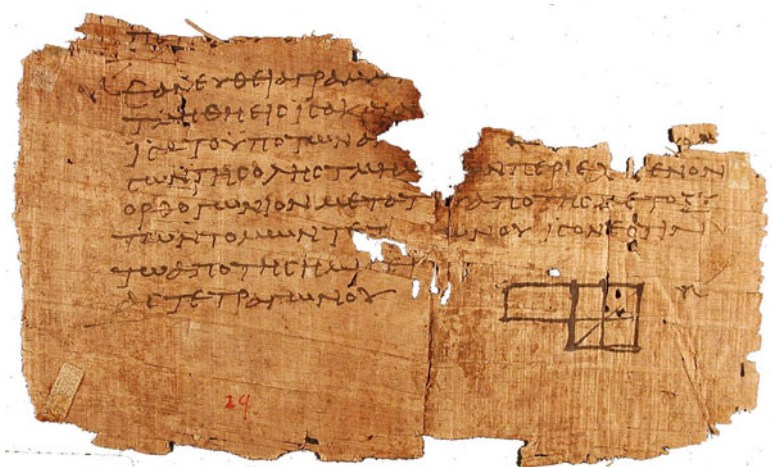 ΕΑΝΕΥΘΕΙΑΓΡΑΜΜ
ΤΜΗΘΗΕΙϹΙϹΑΚΑΙΑ
ΙϹΑΤΟΥΠΟΤΩΝΑ
ϹΩΝΤΗϹΟΛΗϹΤΜΗΜ ΩΝΠΕΡΙΕΧ ΜΕΝΟΝ
ΟΡΘΟΓΩΝΙΟΝΜΕΤΟΤ ΥΑΠΟΤΗϹΜΕΤΟΞΥ
ΤΩΝΤΟΜΩΝΤΕΤ ΩΝΟΥΙϹΟΝΕϹΤΙΝ
ΤΩΑΠΟΤΗϹΗΜΙ
ΑϹΤΕΤΡΑΓΩΝΟΥ
29